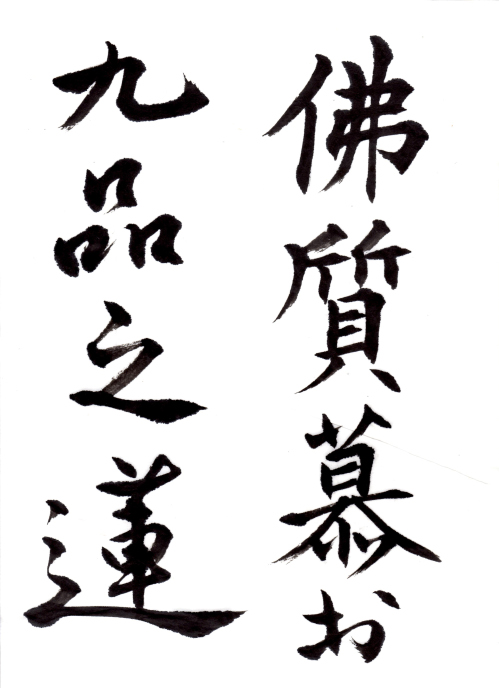 佛質慕於
九品之蓮